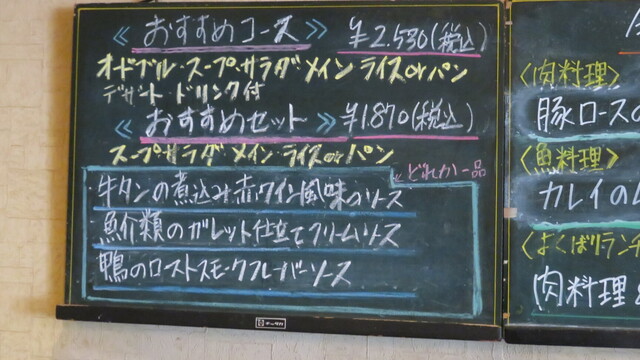 ≪おすすめコース≫ ¥2.530(税込)
オードブル・スープ・サラダ メイン ライスorパン
デザート・ドリンク付
≪おすすめセット≫ ¥1.870(税込)
スープ・サラダ・メイン・ライスorパン
どれか一品
牛タンの煮込み赤ワイン風味のソース
魚介類のガレット仕立てクリームソース
鴨のローストスモークフレーバーソース
〈肉料理〉
豚ロースの
〈魚料理〉
カレイの
〈よくばりランチ
肉料理